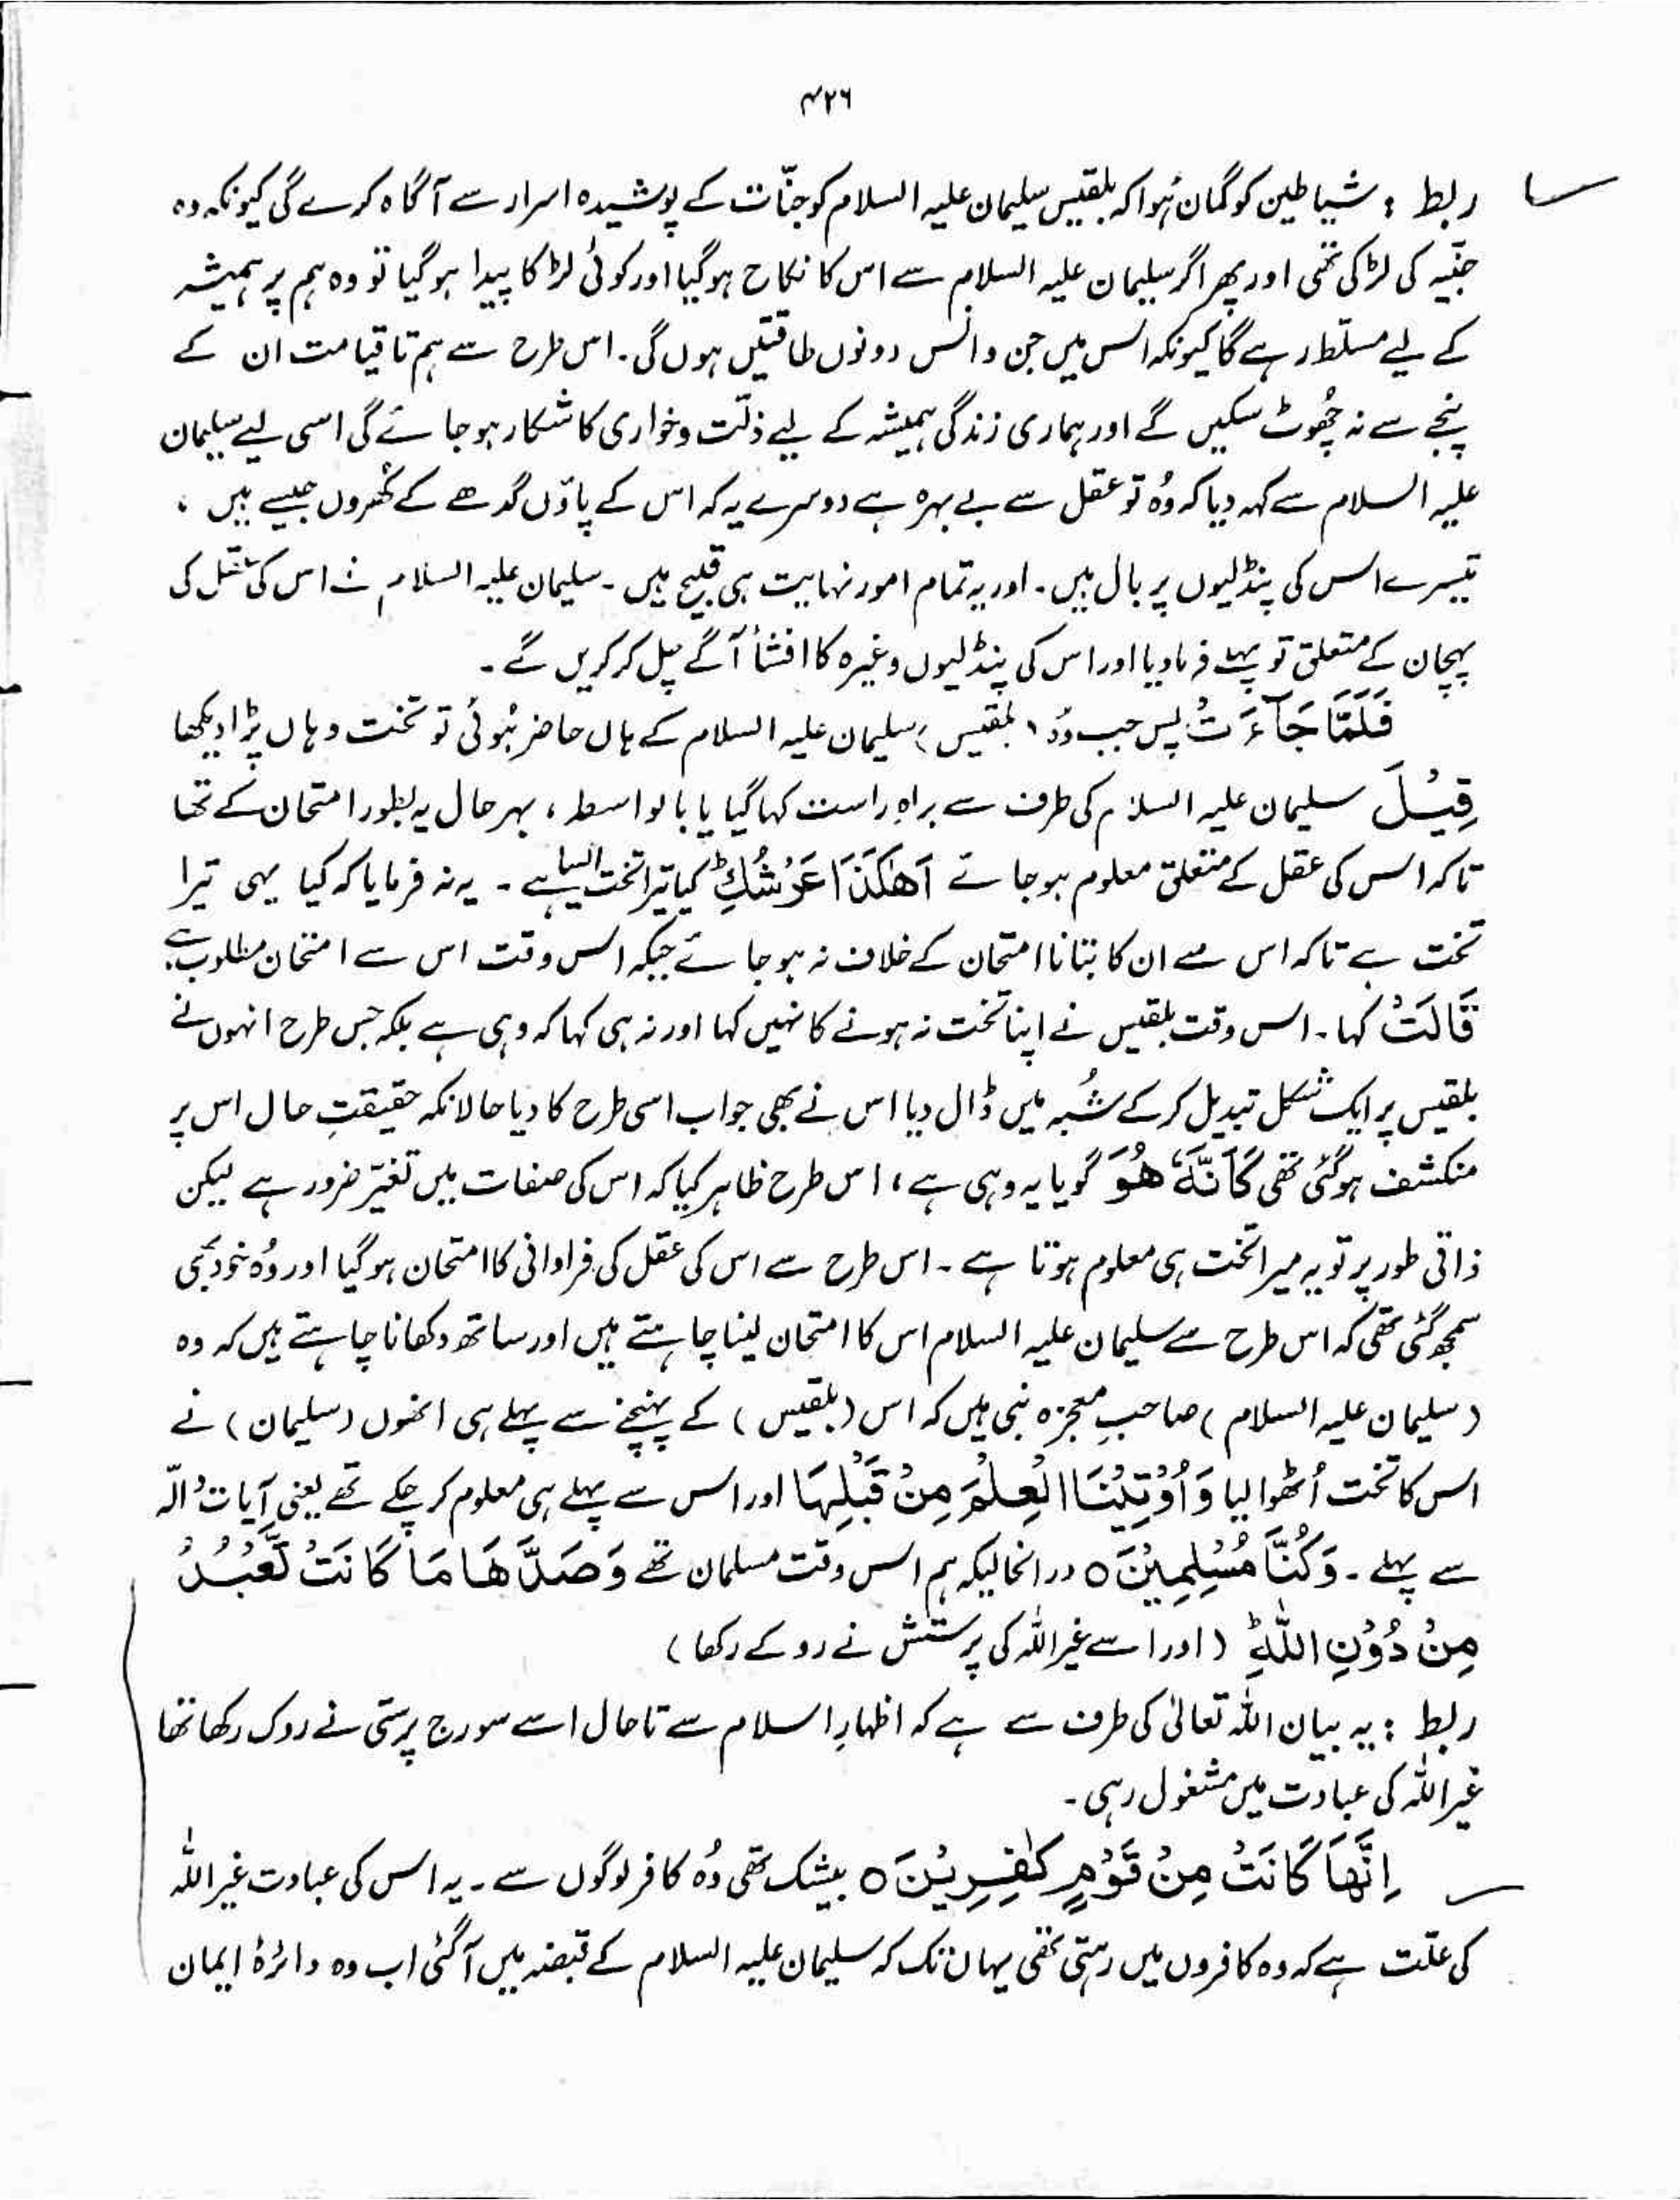 ۴۲۶
ربط : شیاطین کو گمان ہُوا کہ بلقیس سلیمان علیہ السلام کو جنّات کے پوشیدہ اسرار سے آگاہ کرے گی کیونکہ وہ
جنّیہ کی لڑکی تھی اور پھر اگر سلیمان علیہ السلام سے اس کا نکاح ہو گیا اور کوئی لڑکا پیدا ہو گیا تو وہ ہم پر ہمیشہ
کے لیے مسلّط رہے گا کیونکہ اس میں جن و انس دونوں طاقتیں ہوں گی۔ اس طرح سے ہم تا قیامت ان کے
پنجے سے نہ چھُوٹ سکیں گے اور ہماری زندگی ہمیشہ کے لیے ذلّت و خواری کا شکار ہو جائے گی اسی لیے سلیمان
علیہ السلام سے کہہ دیا کہ وُہ تو عقل سے بے بہرہ ہے دوسرے یہ کہ اس کے پاؤں گدھے کے کھُروں جیسے ہیں ،
تیسرے اس کی پنڈلیوں پر بال ہیں۔ اور یہ تمام امور نہایت ہی قبیح ہیں۔ سلیمان علیہ السلام نے اس کی عقل کی
پہچان کے متعلق تو پہلے فرما دیا اور اس کی پنڈلیوں وغیرہ کا افشأ آگے چل کر کریں گے۔
فَلَمَّا جَآءَتْ پس جب وُہ (بلقیس) سلیمان علیہ السلام کے ہاں حاضر ہُوئی تو تخت وہاں پڑا دیکھا
قِیْلَ سلیمان علیہ السلام کی طرف سے براہِ راست کہا گیا یا بالواسطہ ، بہر حال یہ بطور امتحان کے تھا
تاکہ اس کی عقل کے متعلق معلوم ہو جائے اَھٰکَذَا عَرْشُکِ ؕ کیا تیرا تخت ایسا ہے۔ یہ نہ فرمایا کہ کیا یہی تیرا
تخت ہے تاکہ اس سے ان کا بتانا امتحان کے خلاف نہ ہو جائے جبکہ اس وقت اس سے امتحان مطلوب ہے۔
قَالَتْ کہا۔ اس وقت بلقیس نے اپنا تخت نہ ہونے کا نہیں کہا اور نہ ہی کہا کہ وہی ہے بلکہ جس طرح انہوں نے
بلقیس پر ایک شکل تبدیل کر کے شُبہ میں ڈال دیا اس نے بھی جواب اسی طرح کا دیا حالانکہ حقیقتِ حال اس پر
منکشف ہو گئی تھی کَاَنَّہٗ ھُوَ گویا یہ وہی ہے ، اس طرح ظاہر کیا کہ اس کی صفات میں تغیّر ضرور ہے لیکن
ذاتی طور پر تو یہ میرا تخت ہی معلوم ہوتا ہے۔ اس طرح سے اس کی عقل کی فراوانی کا امتحان ہو گیا اور وُہ خود بھی
سمجھ گئی تھی کہ اس طرح سے سلیمان علیہ السلام اس کا امتحان لینا چاہتے ہیں اور ساتھ دکھانا چاہتے ہیں کہ وہ
(سلیمان علیہ السلام) صاحبِ معجزہ نبی ہیں کہ اس (بلقیس) کے پہنچنے سے پہلے ہی انھوں (سلیمان) نے
اس کا تخت اُٹھوا لیا وَاُوْتِیْنَا الْعِلْمَ مِنْ قَبْلِہَا اور اس سے پہلے ہی معلوم کر چکے تھے یعنی آیات دالّہ
سے پہلے۔ وَکُنَّا مُسْلِمِیْنَ ○ درانحالیکہ ہم اس وقت مسلمان تھے وَصَدَّھَا مَا کَانَتْ تَّعْبُدُ
مِنْ دُوْنِ اللّٰہِ ؕ (اور اسے غیر اللہ کی پرستش نے روکے رکھا)
ربط : یہ بیان اللہ تعالیٰ کی طرف سے ہے کہ اظہارِ اسلام سے تا حال اسے سورج پرستی نے روک رکھا تھا
غیر اللہ کی عبادت میں مشغول رہی۔
اِنَّھَا کَانَتْ مِنْ قَوْمٍ کٰفِرِیْنَ ○ بیشک تھی وُہ کافر لوگوں سے۔ یہ اس کی عبادت غیر اللہ
کی علّت ہے کہ وہ کافروں میں رہتی تھی یہاں تک کہ سلیمان علیہ السلام کے قبضہ میں آ گئی اب وہ دائرۂ ایمان